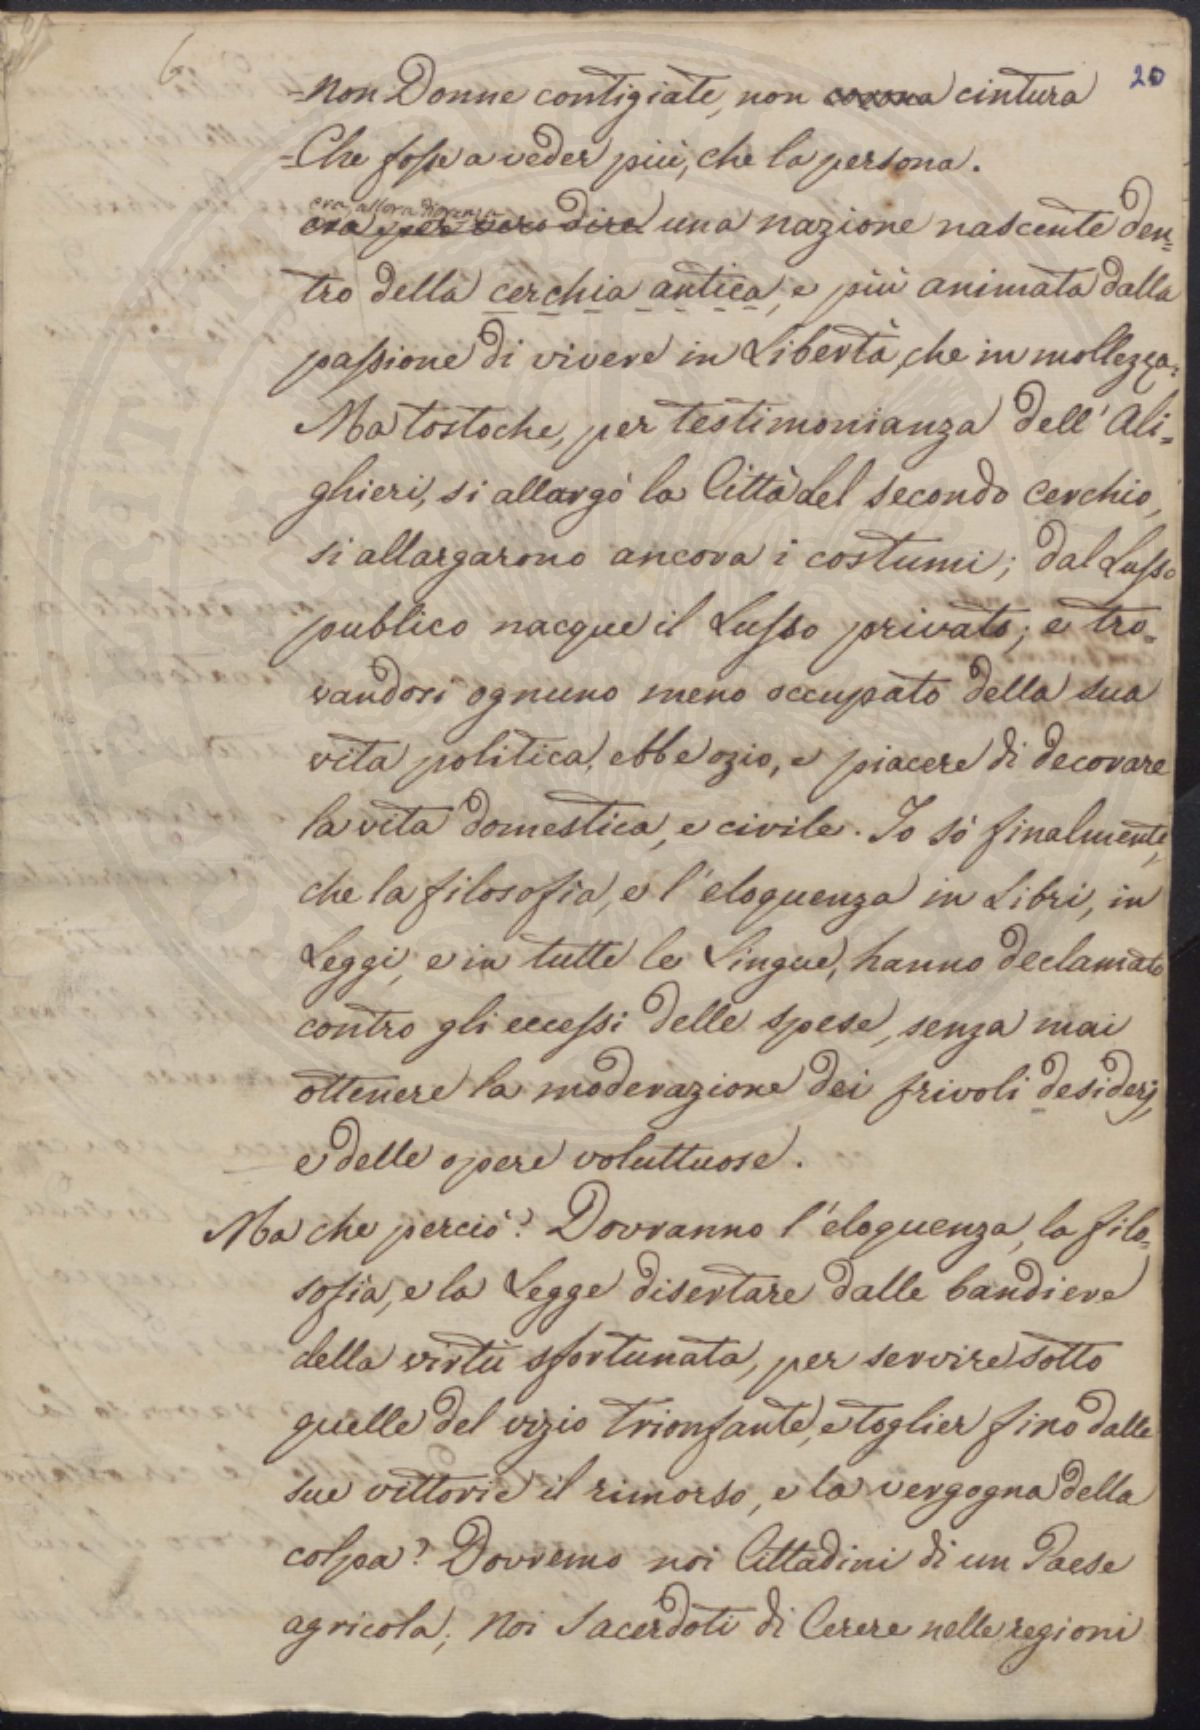 6
20
=Non Donne contigiate, non corona cintura
=Che fosse a veder più, che la persona.
era, allora Firenze
era per vero dire una nazione nascente den=
tro della cerchia antica, e più animata dalla
passione di vivere in Libertà, che in mollezza.
Ma tostoche, per testimonianza dell' Ali=
ghieri, si allargò la Città del secondo cerchio,
si allargarono ancora i costumi; dal Lusso
publico nacque il Lusso privato; e tro=
vandosi ognuno meno occupato della sua
vita politica, ebbe ozio, e piacere di decorare
la vita domestica, e civile. Io sò finalmente,
che la filosofia, e l'eloquenza in Libri, in
Leggi, e in tutte le Lingue, hanno declamato
contro gli eccessi delle spese, senza mai
ottenere la moderazione dei frivoli desiderj,
e delle opere voluttuose.
Ma che perciò? Dovranno l'eloquenza, la filo=
sofia, e la Legge disertare dalle bandiere
della virtù sfortunata, per servire sotto
quelle del vizio trionfante, e toglier fino dalle
sue vittorie il rimorso, e la vergogna della
colpa? Dovremo noi Cittadini di un Paese
agricola; Noi Sacerdoti di Cerere nelle regioni